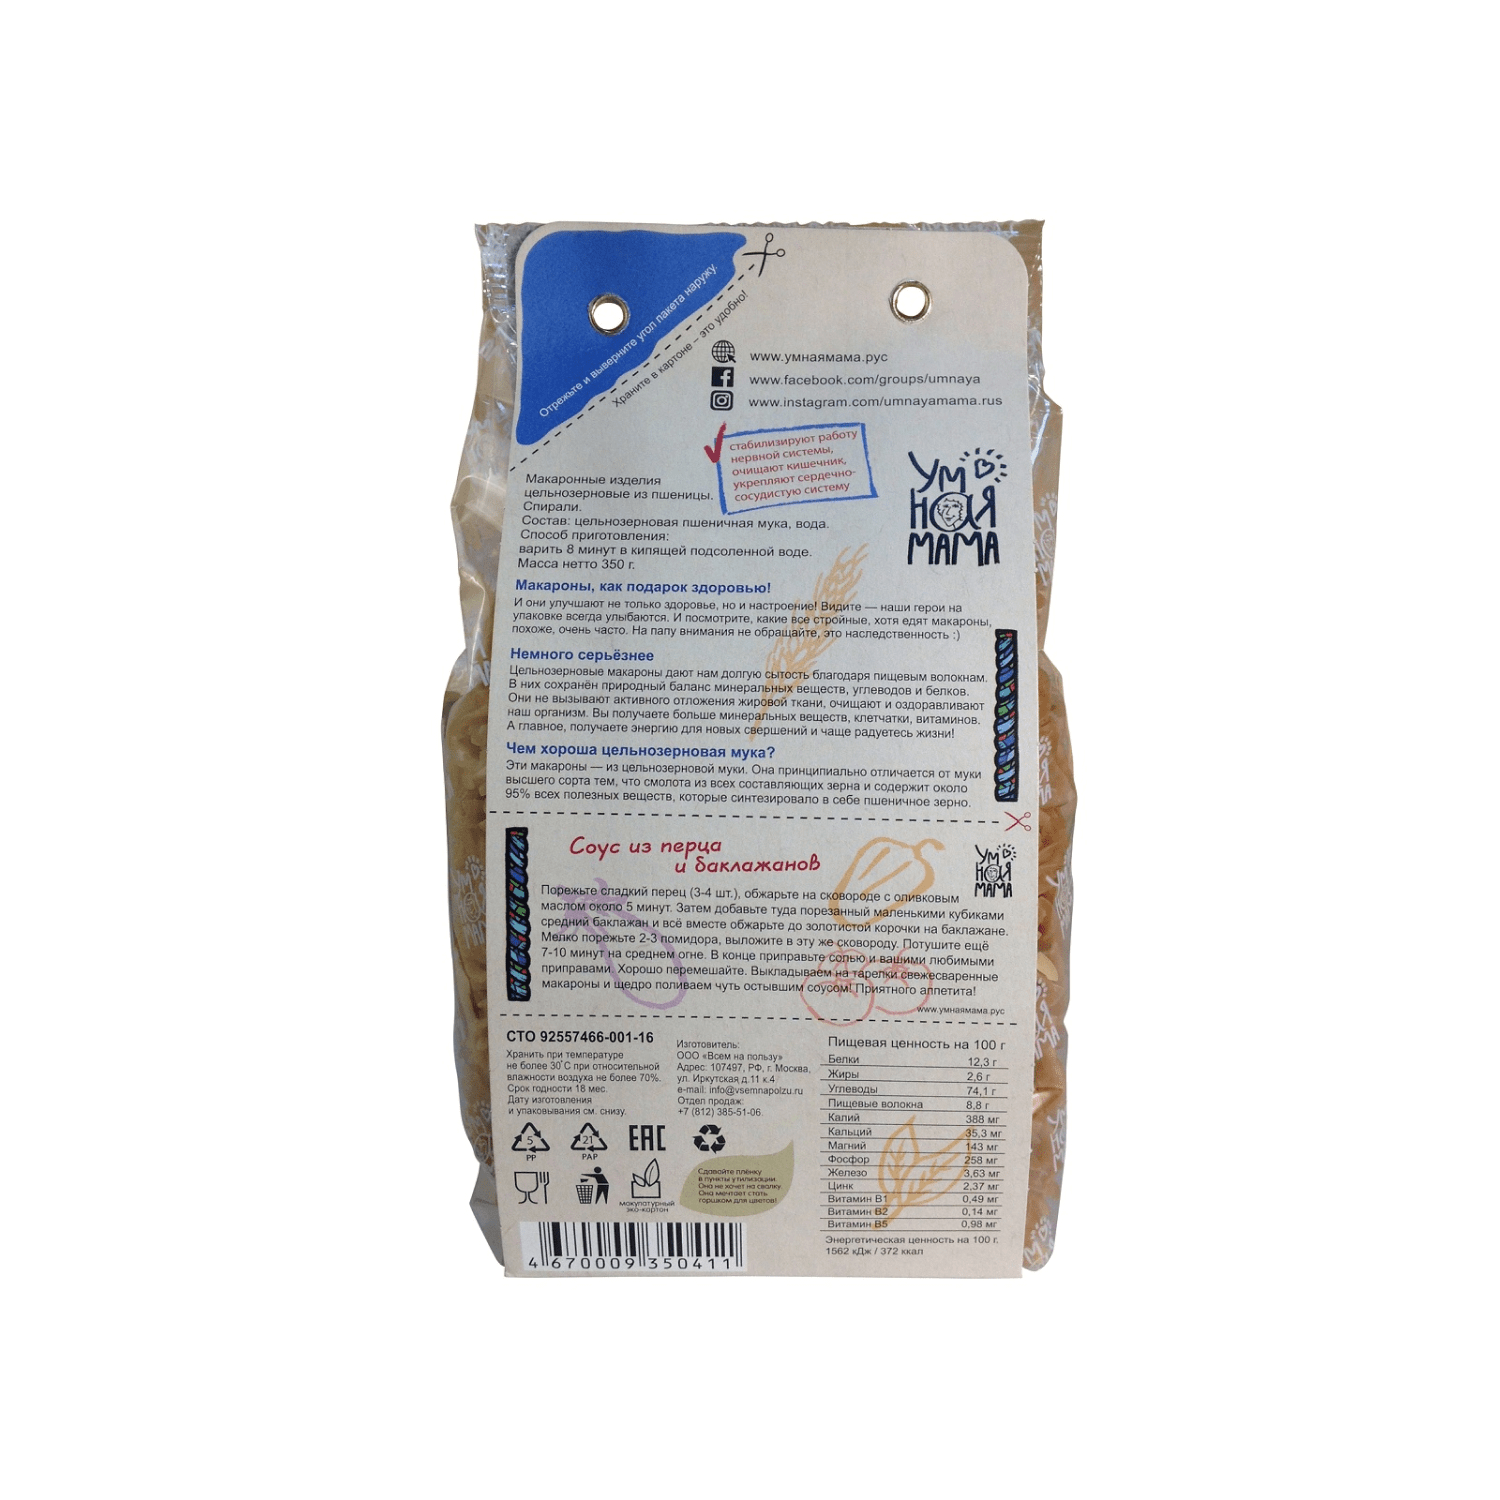 Отрежьте и выверните угол пакета наружу.
Храните в картоне – это удобно!
www.умнаямама.рус
www.facebook.com/groups/umnaya
www.instagram.com/umnayamama.rus
стабилизируют работу
нервной системы,
очищают кишечник,
укрепляют сердечно-
сосудистую систему
УМ
НАЯ
МАМА
Макаронные изделия
цельнозерновые из пшеницы.
Спирали.
Состав: цельнозерновая пшеничная мука, вода.
Способ приготовления:
варить 8 минут в кипящей подсоленной воде.
Масса нетто 350 г.
Макароны, как подарок здоровью!
И они улучшают не только здоровье, но и настроение! Видите — наши герои на
упаковке всегда улыбаются. И посмотрите, какие все стройные, хотя едят макароны,
похоже, очень часто. На папу внимания не обращайте, это наследственность :)
Немного серьёзнее
Цельнозерновые макароны дают нам долгую сытость благодаря пищевым волокнам.
В них сохранён природный баланс минеральных веществ, углеводов и белков.
Они не вызывают активного отложения жировой ткани, очищают и оздоравливают
наш организм. Вы получаете больше минеральных веществ, клетчатки, витаминов.
А главное, получаете энергию для новых свершений и чаще радуетесь жизни!
Чем хороша цельнозерновая мука?
Эти макароны — из цельнозерновой муки. Она принципиально отличается от муки
высшего сорта тем, что смолота из всех составляющих зерна и содержит около
95% всех полезных веществ, которые синтезировало в себе пшеничное зерно.
Соус из перца
и баклажанов
УМ
НАЯ
МАМА
Порежьте сладкий перец (3-4 шт.), обжарьте на сковороде с оливковым
маслом около 5 минут. Затем добавьте туда порезанный маленькими кубиками
средний баклажан и всё вместе обжарьте до золотистой корочки на баклажане.
Мелко порежьте 2-3 помидора, выложите в эту же сковороду. Потушите ещё
7-10 минут на среднем огне. В конце приправьте солью и вашими любимыми
приправами. Хорошо перемешайте. Выкладываем на тарелки свежесваренные
макароны и щедро поливаем чуть остывшим соусом! Приятного аппетита!
www.умнаямама.рус
СТО 92557466-001-16
Хранить при температуре
не более 30°С при относительной
влажности воздуха не более 70%.
Срок годности 18 мес.
Дату изготовления
и упаковывания см. снизу.
Изготовитель:
ООО «Всем на пользу»
Адрес: 107497, РФ, г. Москва,
ул. Иркутская д.11 к.4
e-mail: info@vsemnapolzu.ru
Отдел продаж:
+7 (812) 385-51-06
5
PP
21
PAP
EAC
макулатурный
эко-картон
Сдавайте плёнку
в пункты утилизации.
Она не хочет на свалку.
Она мечтает стать
горшком для цветов!
4 670009 350411
Пищевая ценность на 100 г
Белки 12,3 г
Жиры 2,6 г
Углеводы 74,1 г
Пищевые волокна 8,8 г
Калий 388 мг
Кальций 35,3 мг
Магний 143 мг
Фосфор 258 мг
Железо 3,63 мг
Цинк 2,37 мг
Витамин В1 0,49 мг
Витамин В2 0,14 мг
Витамин В5 0,98 мг
Энергетическая ценность на 100 г.
1562 кДж / 372 ккал